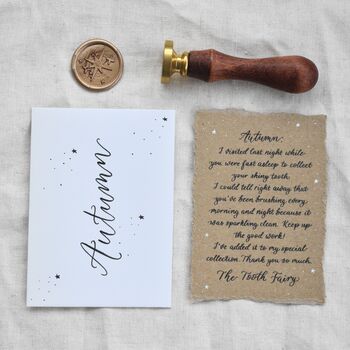 Autumn
Autumn,
I visited last night while
you were fast asleep to collect
your shiny tooth.
I could tell right away that
you've been brushing every
morning and night because it
was sparkling clean. Keep up
the good work!
I've added it to my special
collection. Thank you so much.
The Tooth Fairy